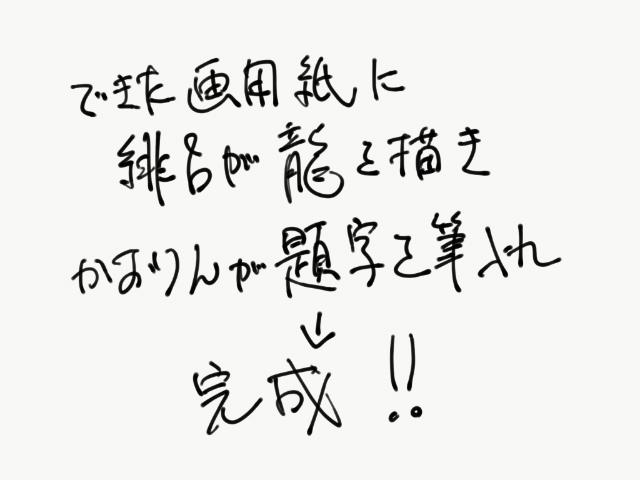 できた画用紙に
緋呂が龍を描き
かおりんが題字を筆入れ
↓
完成!!